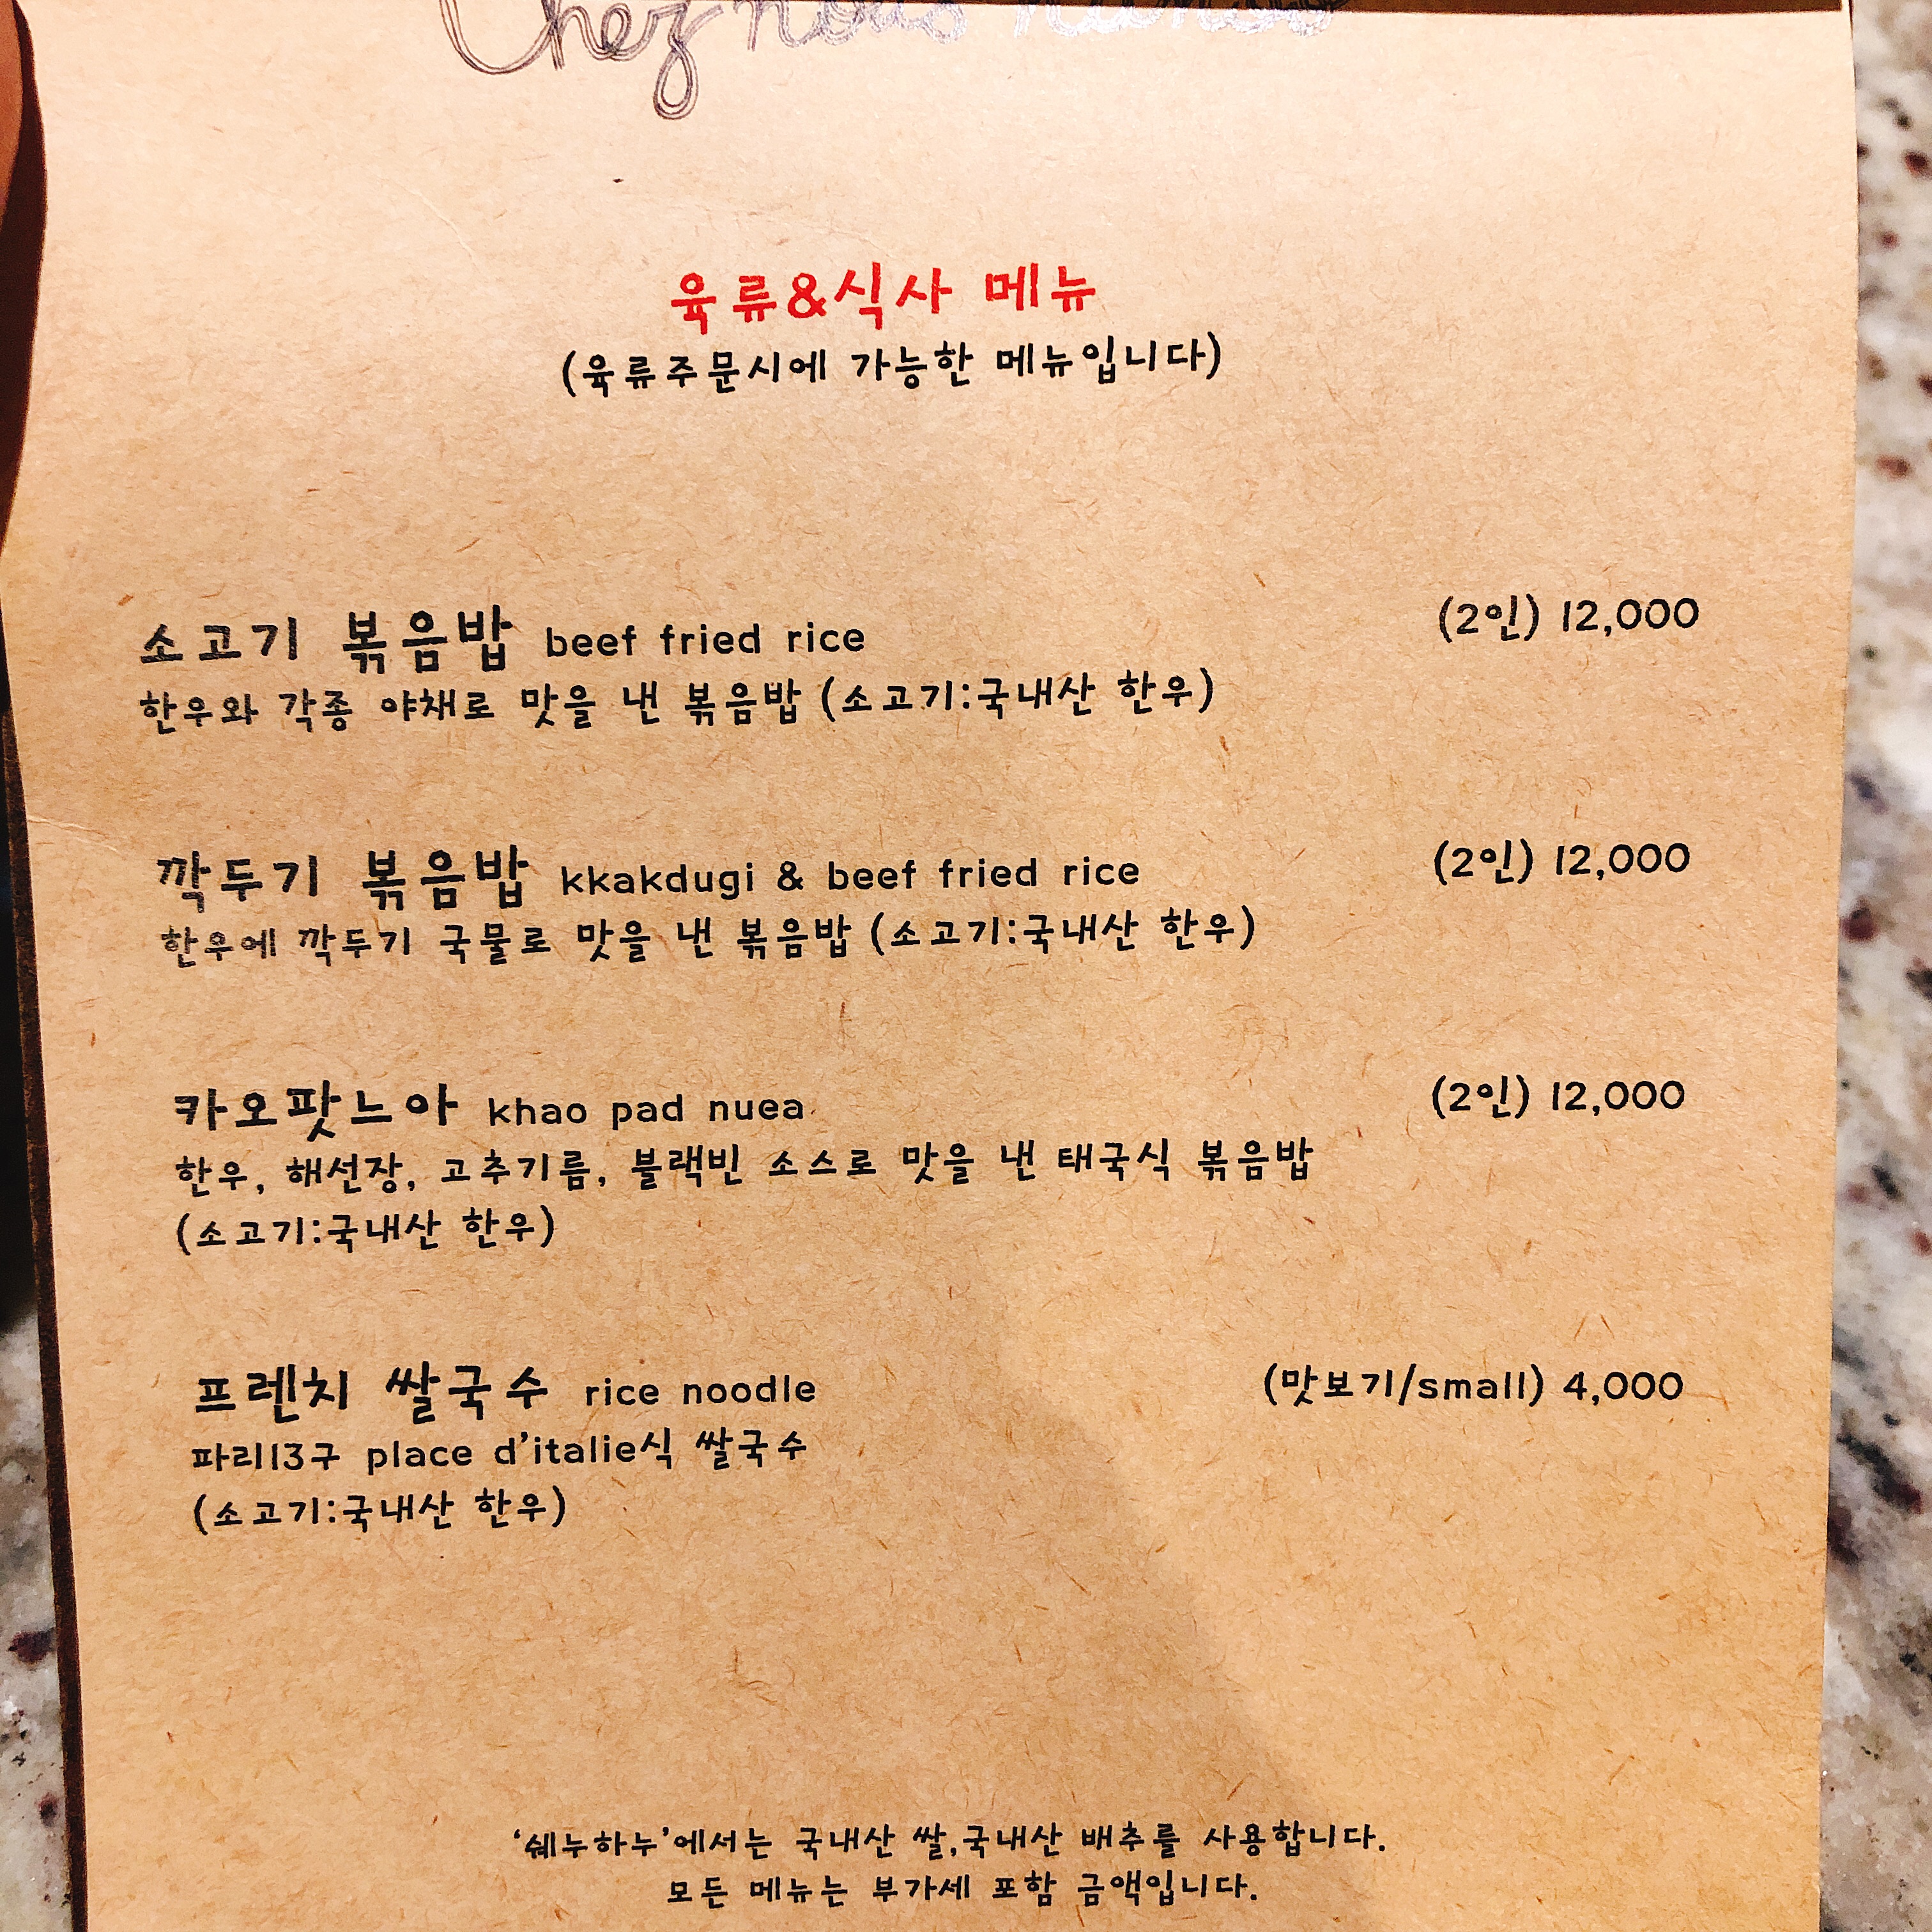 Chez nous
육류&식사 메뉴
(육류주문시에 가능한 메뉴입니다)
소고기 볶음밥 beef fried rice (2인) 12,000
한우와 각종 야채로 맛을 낸 볶음밥 (소고기:국내산 한우)
깍두기 볶음밥 kkakdugi & beef fried rice (2인) 12,000
한우에 깍두기 국물로 맛을 낸 볶음밥 (소고기:국내산 한우)
카오팟느아 khao pad nuea (2인) 12,000
한우, 해선장, 고추기름, 블랙빈 소스로 맛을 낸 태국식 볶음밥
(소고기:국내산 한우)
프렌치 쌀국수 rice noodle (맛보기/small) 4,000
파리13구 place d'italie식 쌀국수
(소고기:국내산 한우)
'쉐누하누'에서는 국내산 쌀,국내산 배추를 사용합니다.
모든 메뉴는 부가세 포함 금액입니다.